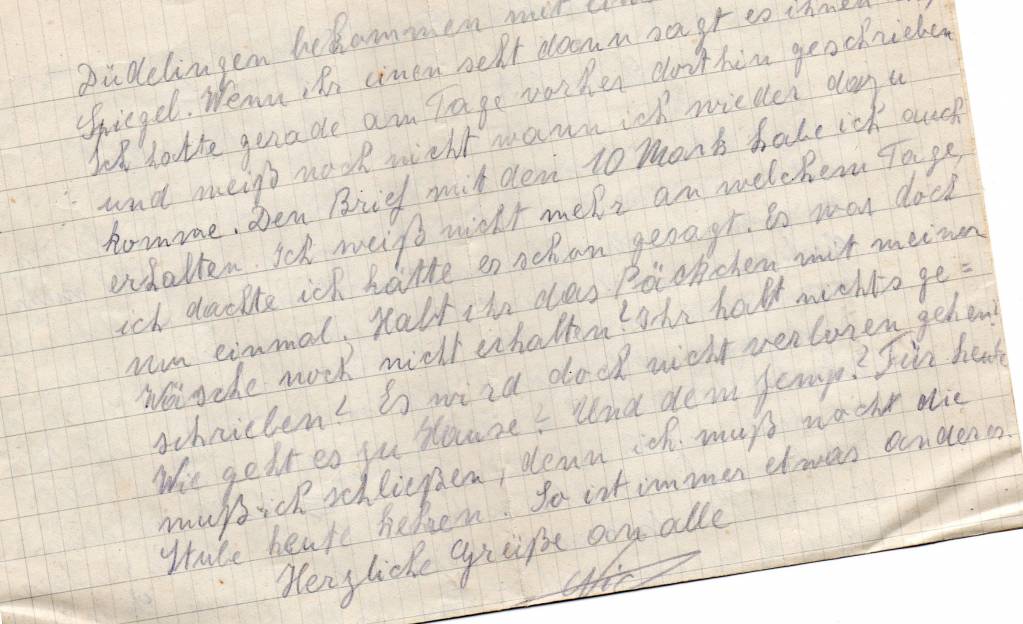 Düdelingen bekommen mit
Spiegel. Wenn ihr einen seht dann sagt es ihnen
Ich hatte gerade am Tage vorher dorthin geschrieben
und weiß noch nicht wann ich wieder dazu
komme. Den Brief mit den 10 Mark habe ich auch
erhalten. Ich weiß nicht mehr an welchem Tage,
ich dachte ich hätte es schon gesagt. Es war doch
nur einmal. Habt ihr das Päckchen mit meiner
Wäsche noch nicht erhalten? Ihr habt nichts ge=
schrieben? Es wird doch nicht verloren gehen?
Wie geht es zu Hause? Und dem Jemp? Für heute
muß ich schließen, denn ich muß die
Stube heute kehren. So ist immer etwas anderes.
Herzliche Grüße an alle
Nic